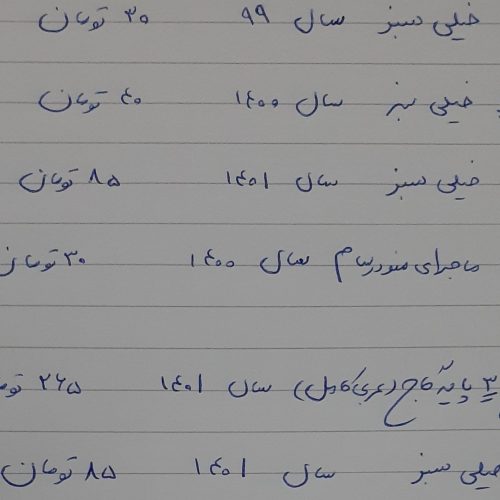 خیلی سبز سال ۹۹ ۳۰ تومان
خیلی سبز سال ۱۴۰۰ ۴۰ تومان
خیلی سبز سال ۱۴۰۱ ۸۵ تومان
ماجرای من و درسام سال ۱۴۰۰ ۳۰ تومان
۳ پایه گاج (عربی کامل) سال ۱۴۰۱ ۲۶۵ توم
خیلی سبز سال ۱۴۰۱ ۸۵ تومان